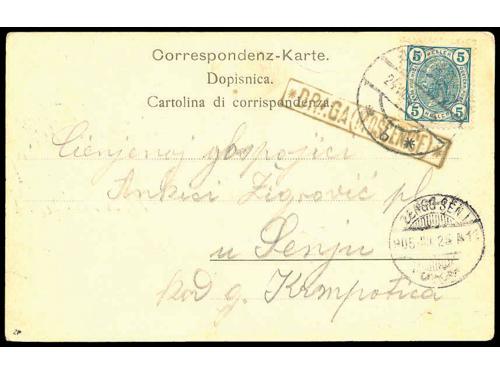 Correspondenz-Karte.
Dopisnica.
Cartolina di corrispondenza.
5 5
HELLER HELLER
5 5
*DRAGA (MOŠĆENICE)*
b *
Cienjenoj gospojici
Ankici Žigrović pl
u Senju
kod g. Krmpotića
ZENGG SENJ
905